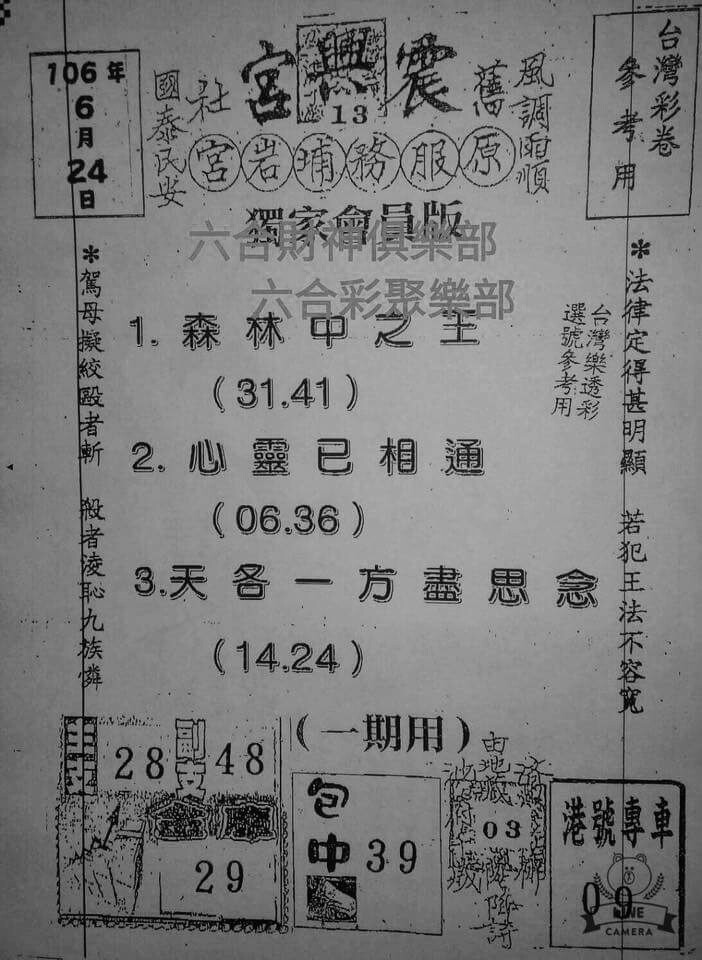 台灣彩卷
參考用
106年
6月
24日
震興宮
13
風調雨順
國泰民安
舊社
原服務埔岩宮
獨家會員版
六合財神俱樂部
六合彩聚樂部
*法律定得甚明顯 若犯王法不容寬
*駕母擬絞毆者斬 殺者淩恥九族憐
台灣樂透彩
選號參考用
1. 森林中之王
(31.41)
2. 心靈已相通
(06.36)
3. 天各一方盡思念
(14.24)
(一期用)
28
副支 48
29
包中 39
03
港號專車
09
LINE
CAMERA